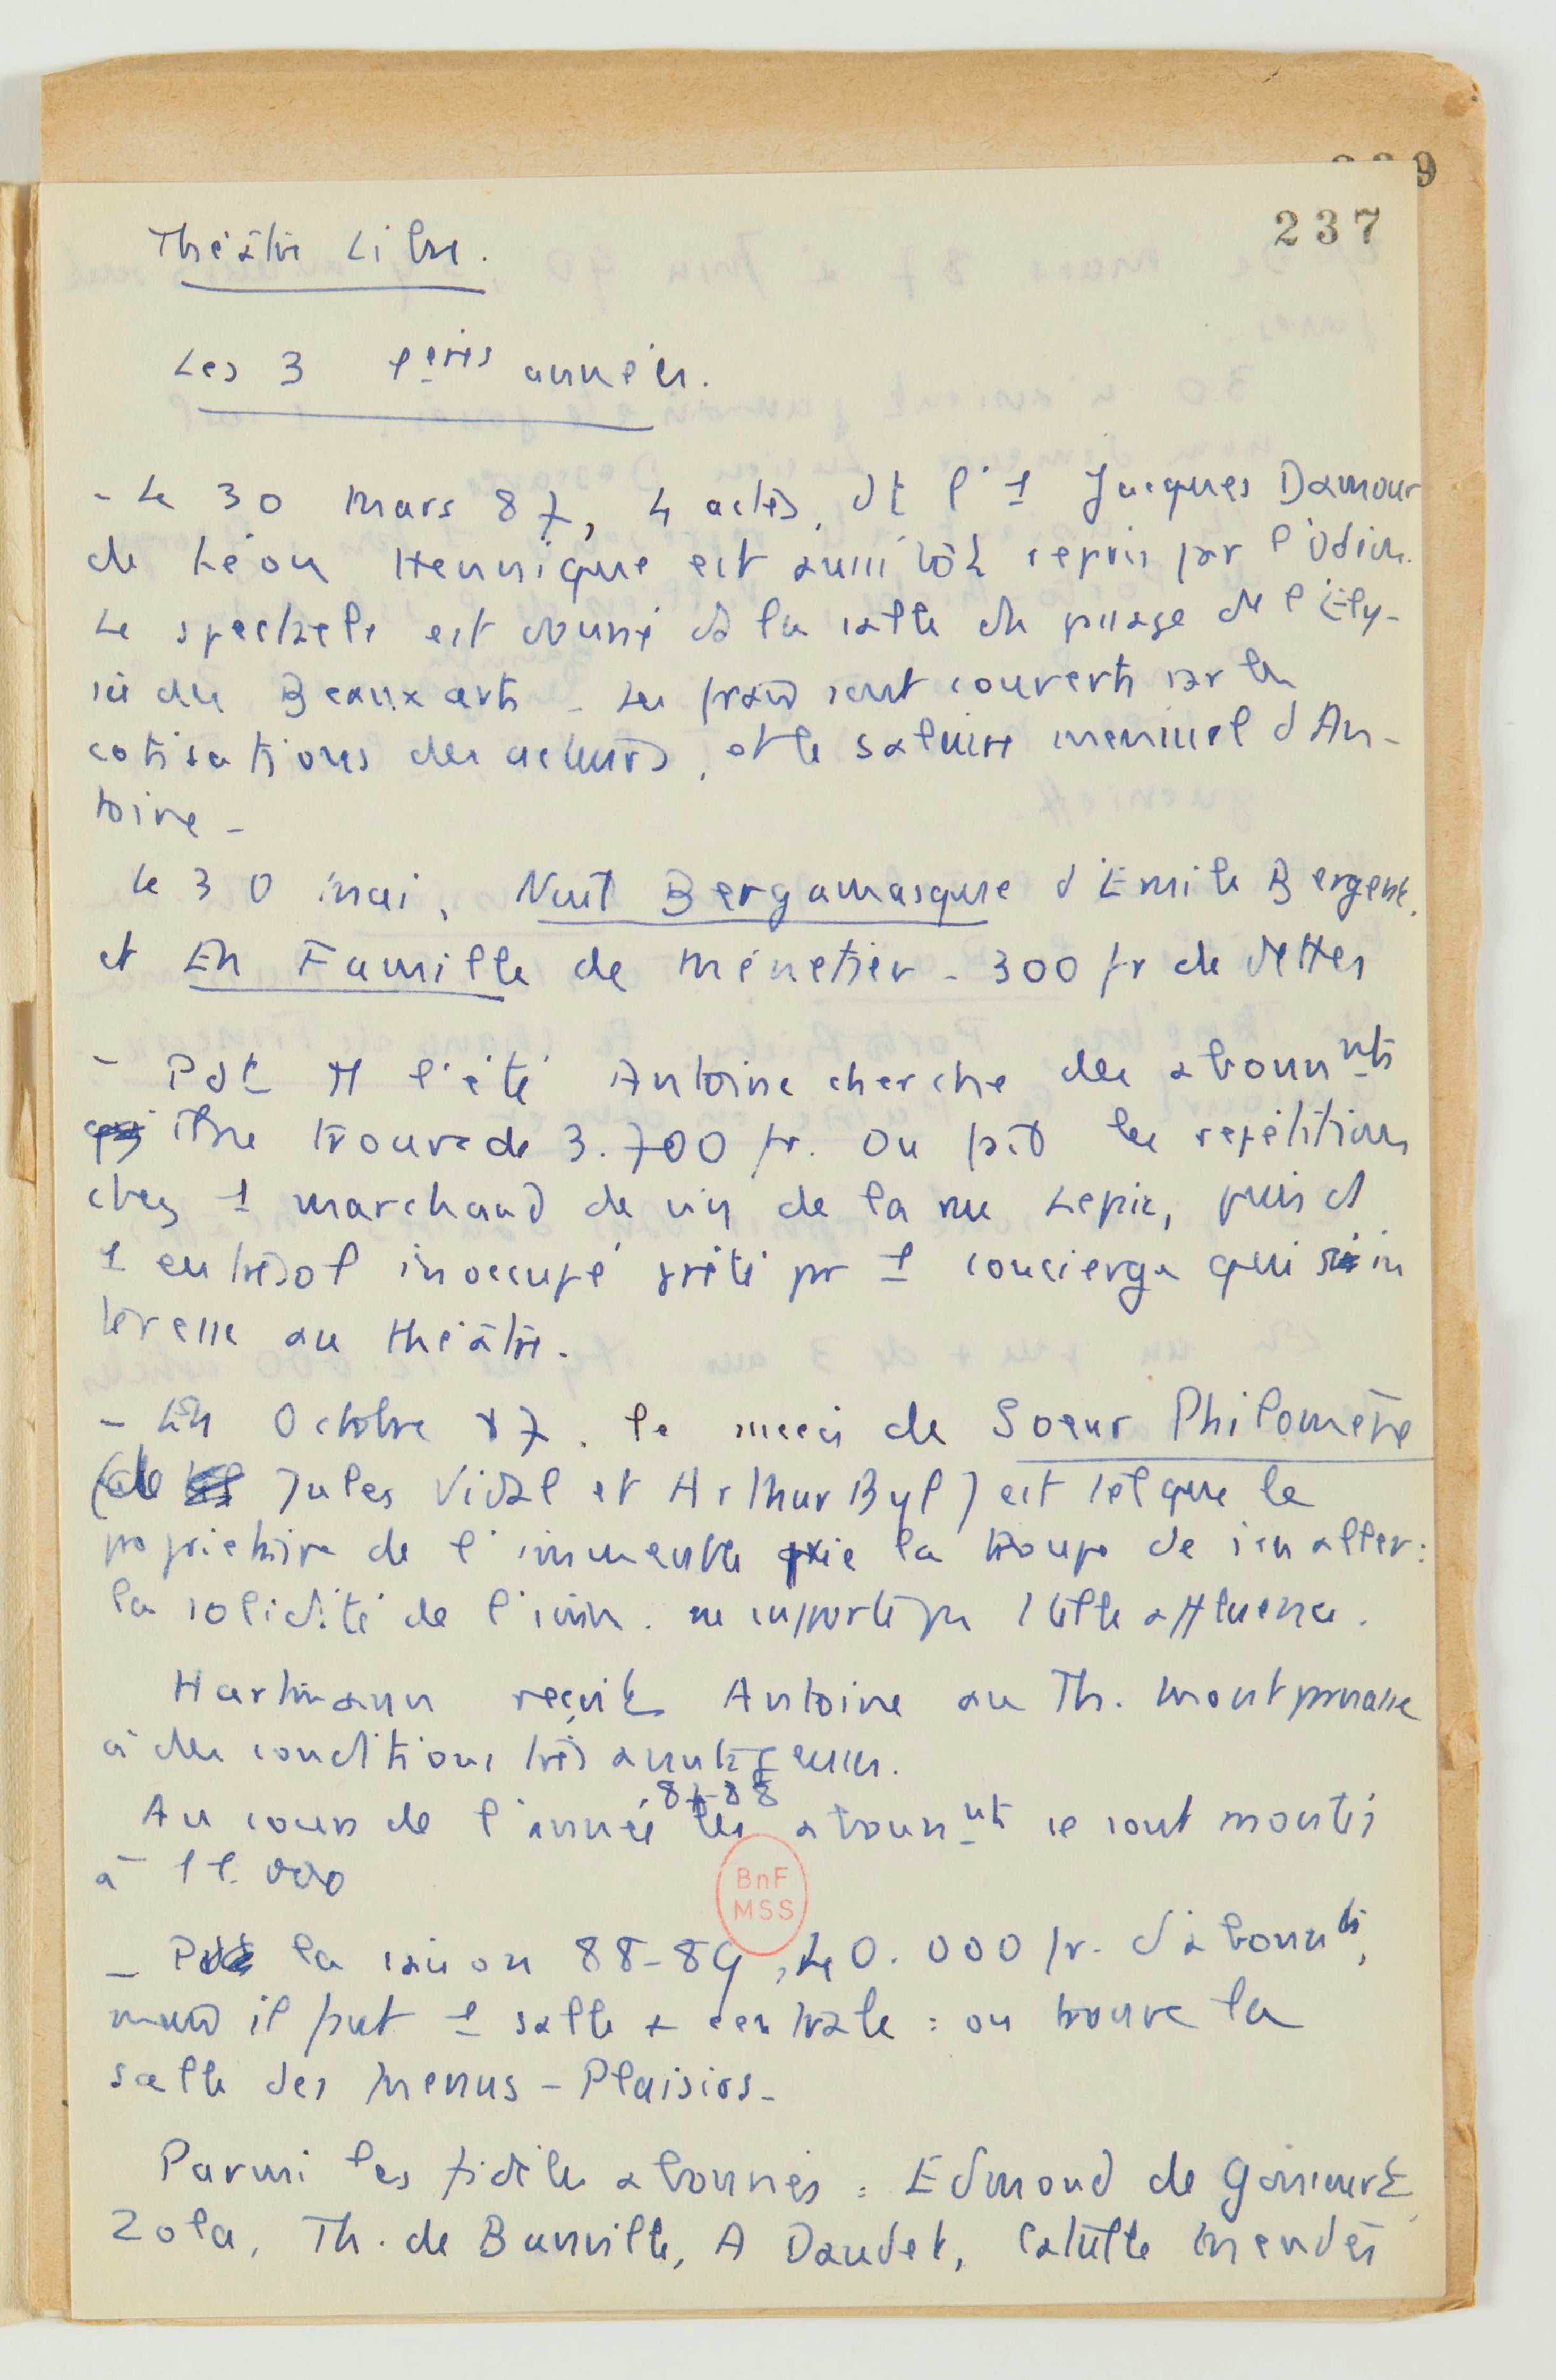 239
237
Théâtre Libre.
Les 3 1ères années.
- Le 30 Mars 87, 4 actes, dt l'1 Jacques Damour
de Léon Hennique est aussitôt repris par l'Odéon.
Le spectacle est donné ds la salle du passage de l'Ély-
sée des Beaux arts - Les frais sont couverts par les
cotisations des acteurs, et le salaire mensuel d'An-
toine -
Le 30 mai, Nuit Bergamasque d'Emile Bergerat,
et En Famille de Ménetier - 300 fr de dettes
- Pdt tt l'été Antoine cherche des abonnnts
trouve de 3.700 fr. On fait les répétitions
chez 1 marchand de vin de la rue Lepic, puis ds
1 entresol inoccupé prêté pr 1 concierge qui s'in
téresse au théâtre.
- En Octobre 87, le succès de Soeur Philomène
(de Jules Vidal et Arthur Byl) est tel que le
propriétaire de l'immeuble prie la troupe de s'en aller :
la solidité de l'imm. ne supporte pas 1 telle affluence.
Hartmann reçoit Antoine au Th. Montparnasse
à des conditions très avantageuses.
87-88
Au cours de l'année les abonnnts se sont montés
à 11.000
- Pdt la saison 88-89, 40.000 fr. d'abonnts,
mais il faut 1 salle + centrale : on trouve la
salle des Menus-Plaisirs -
Parmi les fidèles abonnés : Edmond de Goncourt,
Zola, Th. de Banville, A Daudet, Catulle Mendès
BnF
MSS